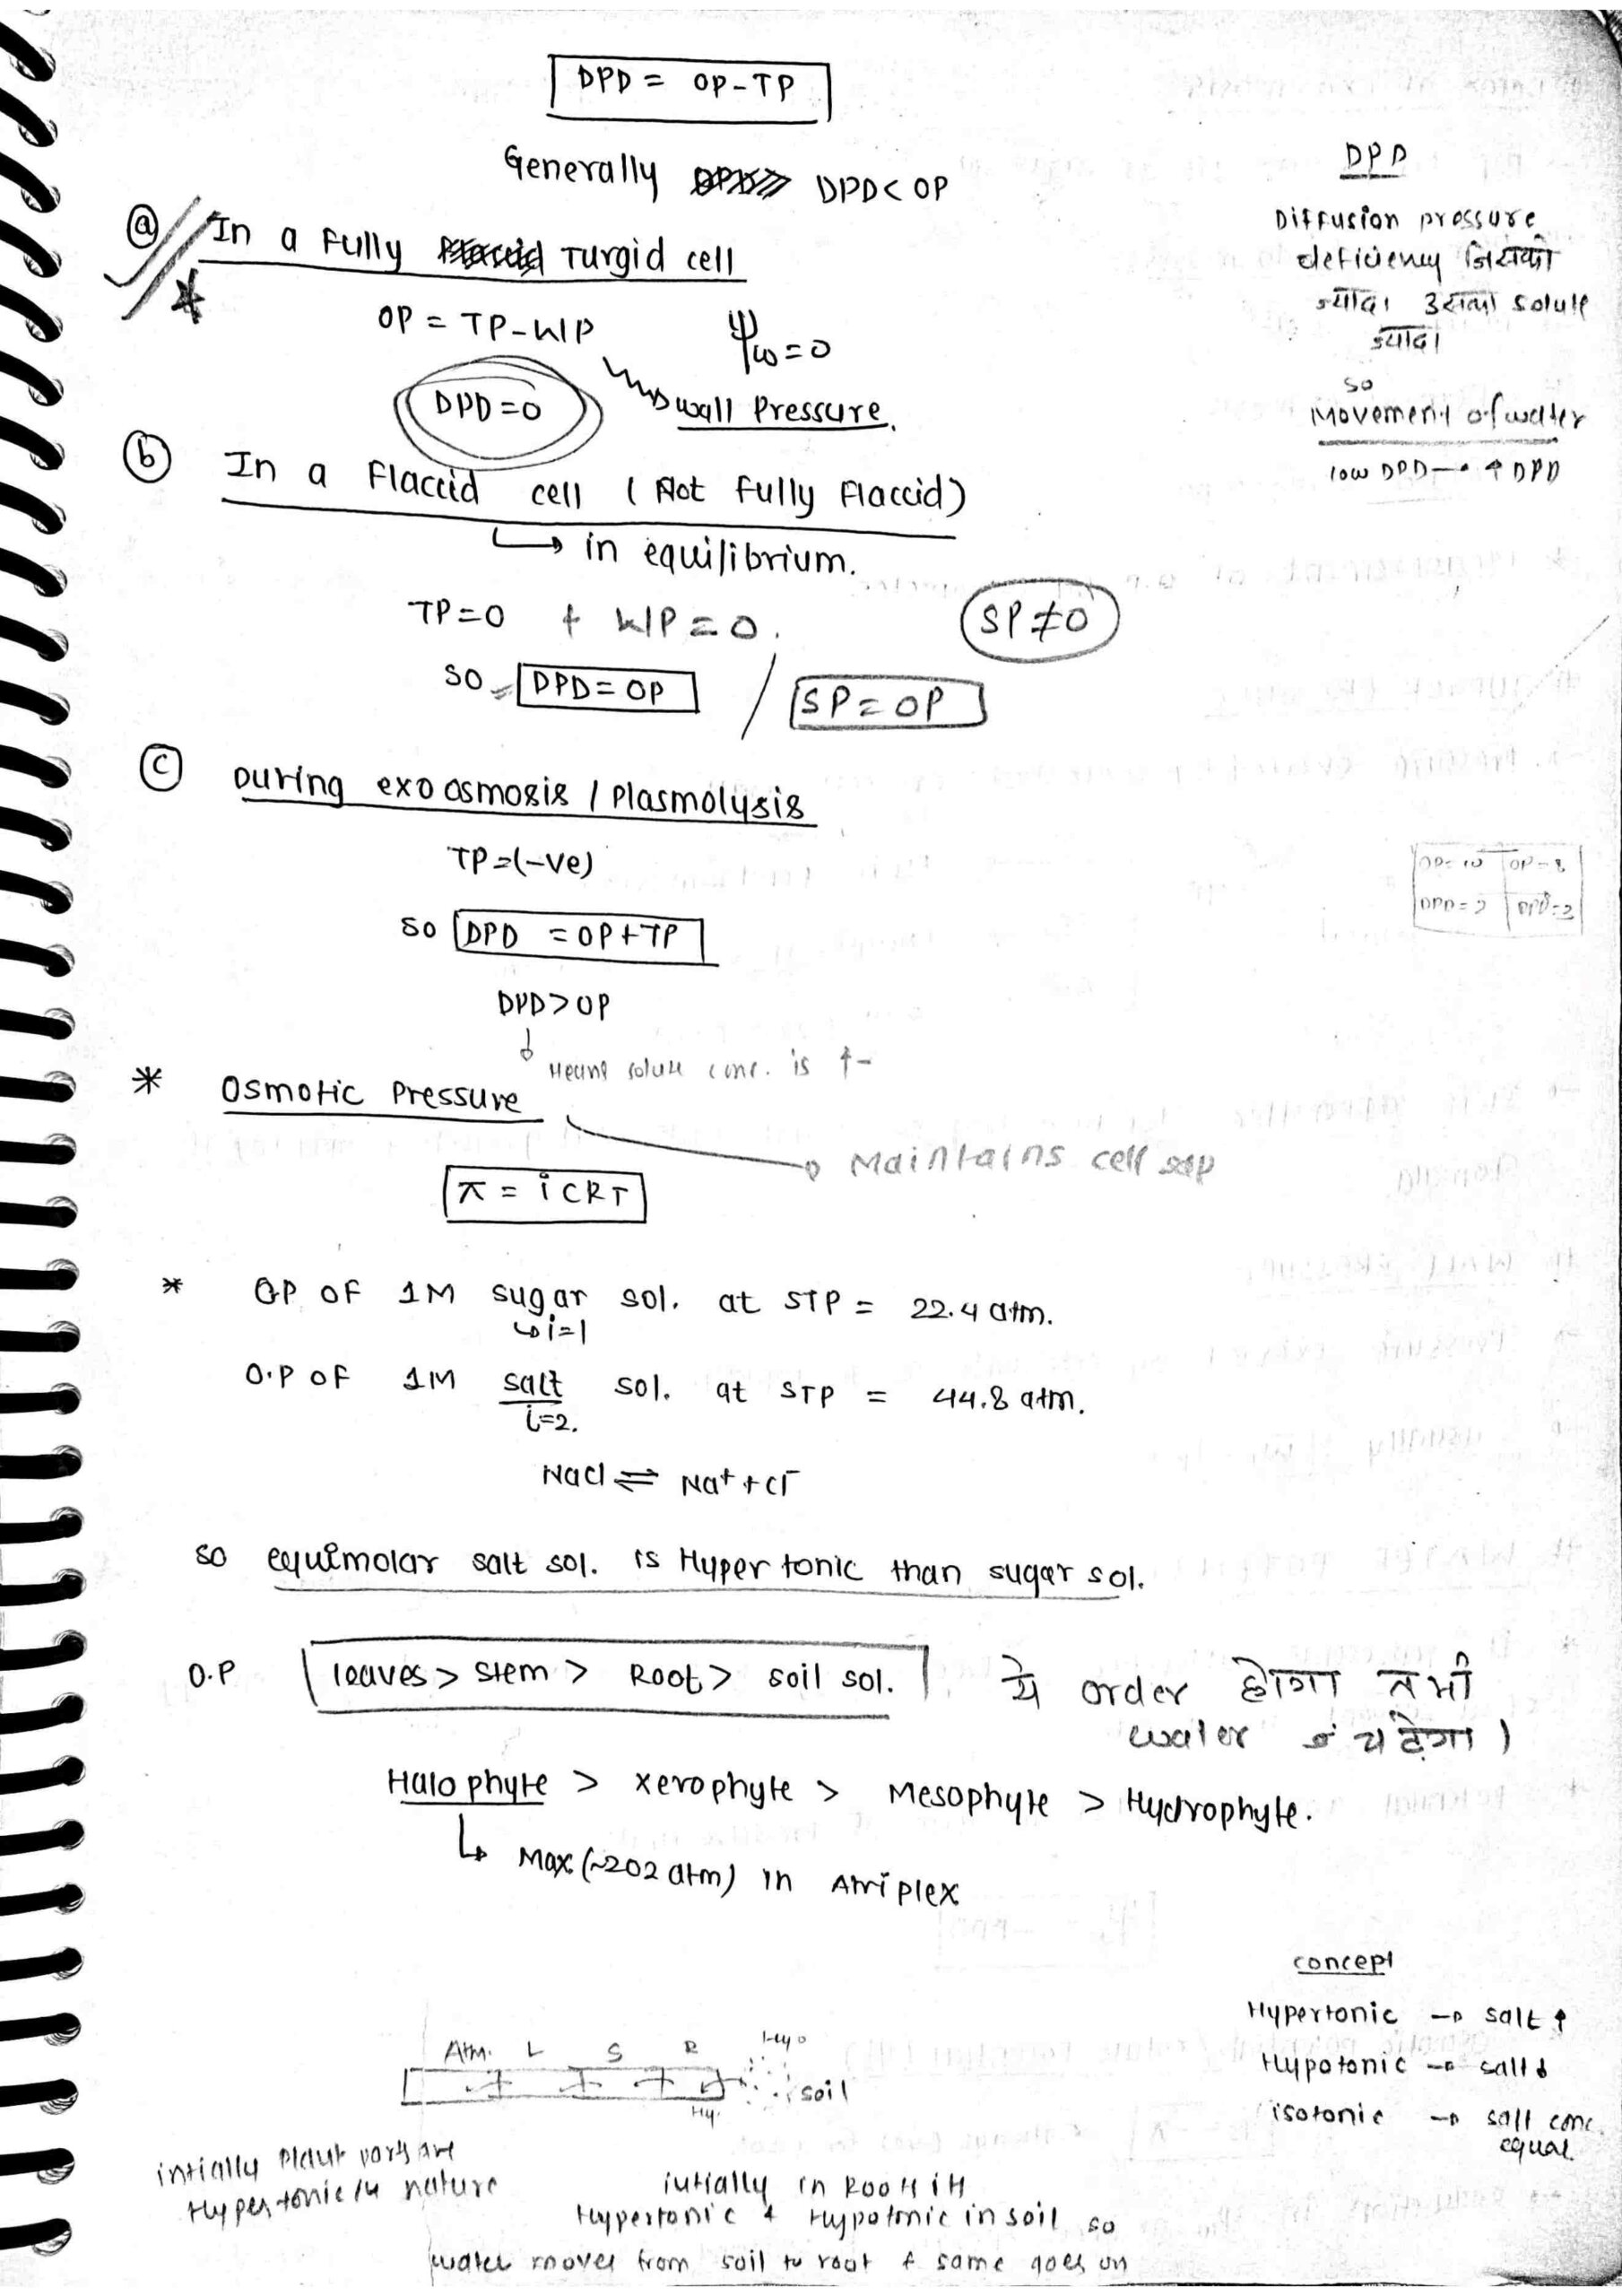 DPD = OP-TP
Generally DPD < OP
DPD
Diffusion pressure
deficiency जिसकी
ज्यादा उसका solute
ज्यादा
so
Movement of water
low DPD → ↑ DPD
(a) In a Fully Turgid cell
OP = TP-WP
Ψw = 0
DPD = 0
wall Pressure.
(b) In a Flaccid cell (Not fully Flaccid)
↳ in equilibrium.
TP=0 + WP = 0.
SP ≠ 0
so DPD = OP / SP = OP
(c) During exoosmosis / Plasmolysis
TP = (-ve)
OP= 10 OP=8
DPD = 2 DPD=2
so DPD = OP+TP
DPD > OP
Means solute conc. is ↑
* Osmotic Pressure
→ Maintains cell sap
π = iCRT
* O.P OF 1M sugar sol. at STP = 22.4 atm.
↳ i=1
O.P OF 1M salt sol. at STP = 44.8 atm.
i=2.
NaCl ⇌ Na⁺ + Cl⁻
so equimolar salt sol. is Hypertonic than sugar sol.
O.P leaves > stem > Root > soil sol.
ये order होगा तभी
water चढेगा।
Halophyte > xerophyte > Mesophyte > Hydrophyte.
↳ Max (~202 atm) in Atriplex
concept
Hypertonic → salt ↑
Hypotonic → salt ↓
isotonic → salt conc.
equal.
Atm. L S R Hyo
soil
Hy.
intially plant parts are
Hypertonic in nature
intially in Root it
Hypertonic & Hypotonic in soil so
water moves from soil to root & same goes on